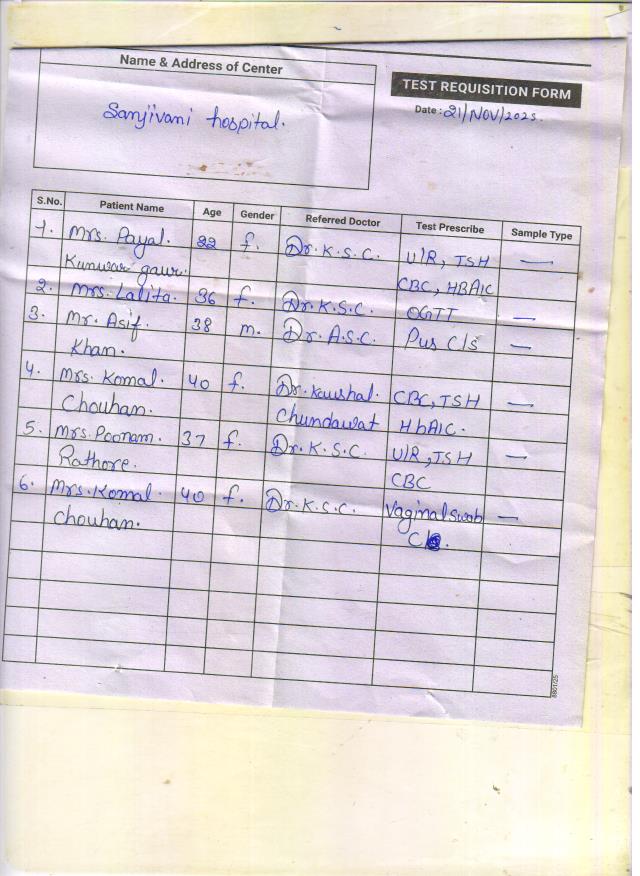 Name & Address of Center
TEST REQUISITION FORM
Sanjivani hospital.
Date : 21/NOV/2025.
S.No. Patient Name Age Gender Referred Doctor Test Prescribe Sample Type
1. Mrs. Payal. 22 f. Dr. K.S.C. U/R, TSH —
Kunwar gaur. CBC, HBAIC
2. Mrs. Lalita. 36 f. Dr. K.S.C. OGTT —
3. Mr. Asif. 38 m. Dr. A.S.C. Pus C/s —
Khan.
4. Mrs. Komal. 40 f. Dr. Kaushal. CBC, TSH —
Chouhan. Chundawat HbAIC.
5. Mrs. Poonam. 37 f. Dr. K.S.C. U/R, TSH —
Rathore. CBC
6. Mrs. Komal. 40 f. Dr. K.S.C. Vaginal swab —
Chouhan. C/S.
8801/25